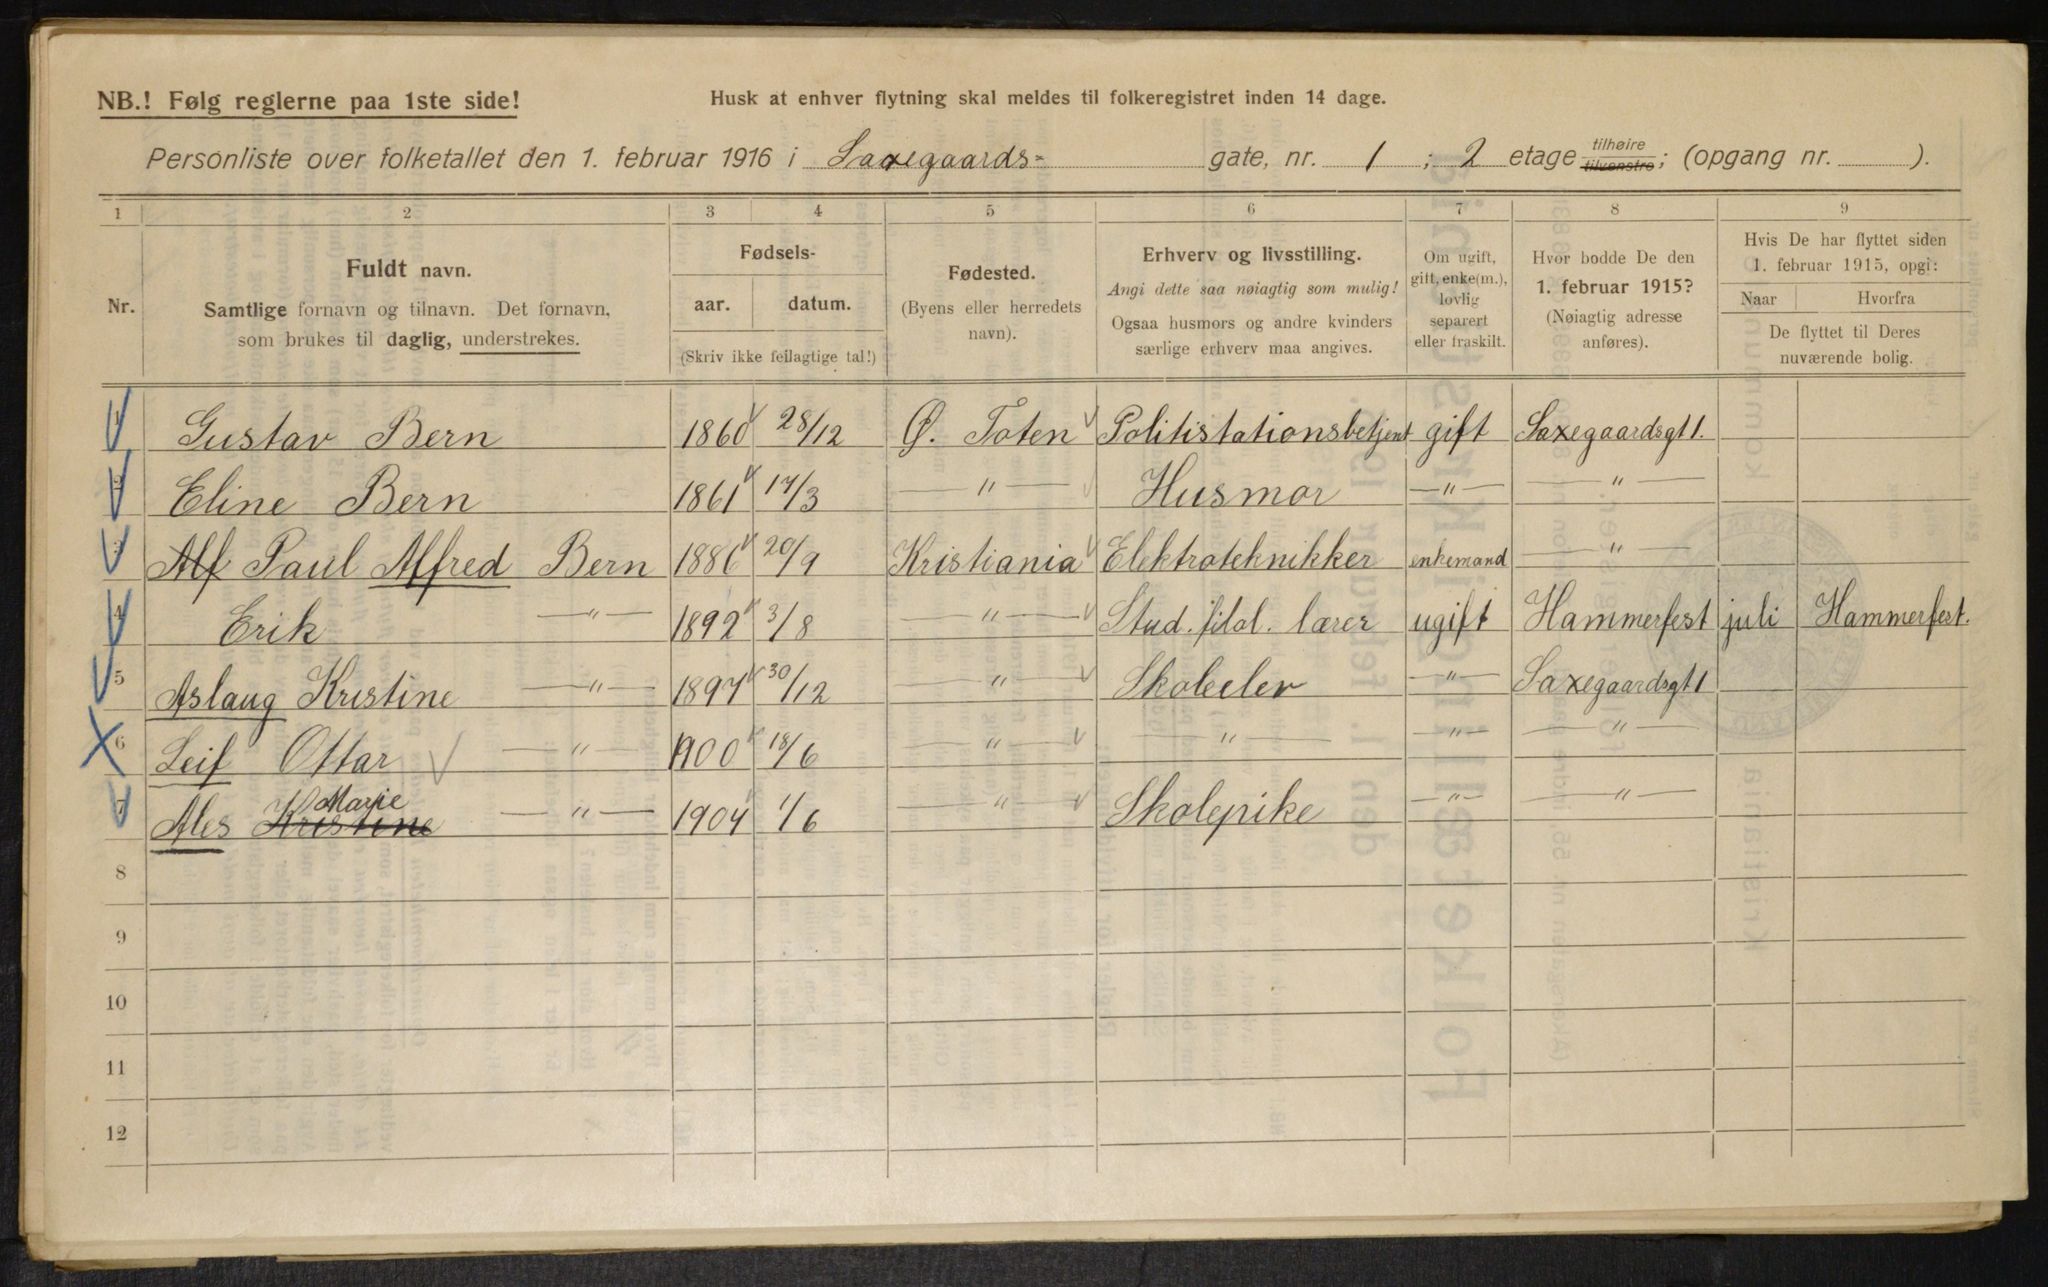 NB.! Følg reglerne paa 1ste side!
Husk at enhver flytning skal meldes til folkeregistret inden 14 dage.
Personliste over folketallet den 1. februar 1916 i Saxegaards- gate, nr. 1 ; 2 etage tilhøire tilvenstre; (opgang nr. ).
1 2 3 4 5 6 7 8 9
Nr.
Fuldt navn.
Samtlige fornavn og tilnavn. Det fornavn,
som brukes til daglig, understrekes.
Fødsels-
aar. datum.
(Skriv ikke feilagtige tal!)
Fødested.
(Byens eller herredets
navn).
Erhverv og livsstilling.
Angi dette saa nøiagtig som mulig!
Ogsaa husmors og andre kvinders
særlige erhverv maa angives.
Om ugift,
gift, enke(m.),
lovlig
separert
eller fraskilt.
Hvor bodde De den
1. februar 1915?
(Nøiagtig adresse
anføres).
Hvis De har flyttet siden
1. februar 1915, opgi:
Naar Hvorfra
De flyttet til Deres
nuværende bolig.
1 Gustav Bern 1860 28/12 Ø. Toten Politistationsbetjent gift Saxegaardsgt 1.
2 Eline Bern 1861 17/3 —"— Husmor —"— —"—
3 Alf Paul Alfred Bern 1886 20/9 Kristiania Elektroteknikker enkemand —"—
4 Erik —"— 1892 3/8 —"— Stud. filol. lærer ugift Hammerfest juli Hammerfest.
5 Aslaug Kristine —"— 1897 30/12 —"— Skoleelev —"— Saxegaardsgt 1
6 Leif Ottar —"— 1900 18/6 —"— —"— —"— —"—
Marie
7 Ales Kristine —"— 1904 1/6 —"— Skolepike —"— —"—
8
9
10
11
12